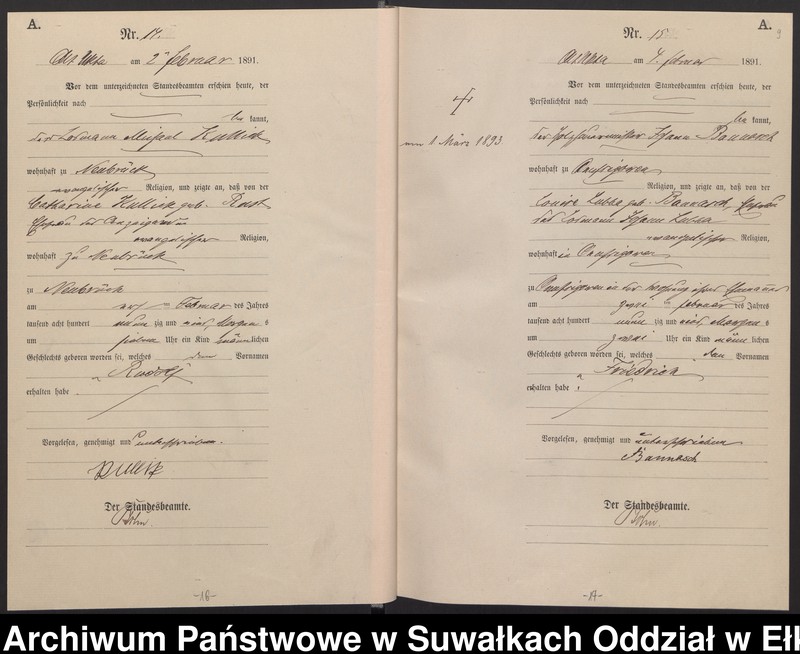 A.
Nr. 14.
Alt Ukta am 2 Februar 1891.
Vor dem unterzeichneten Standesbeamten erschien heute, der
Persönlichkeit nach
be kannt,
der Losmann Michael
wohnhaft zu Neubrück
evangelischer Religion, und zeigte an, daß von der
Catharine geb.
Ehefrau des Anzeigenden
evangelischer Religion,
wohnhaft zu Neubrück
zu Neubrück
am Februar des Jahres
tausend acht hundert neun zig und eins, Morgens
um sieben Uhr ein Kind männlichen
Geschlechts geboren worden sei, welches den Vornamen
Rudolf
erhalten habe.
Vorgelesen, genehmigt und unterschrieben.
Der Standesbeamte.
Böhm
-16-
+
am 1 März 1893.
A.
9
Nr. 15.
Alt Ukta am 4. Februar 1891.
Vor dem unterzeichneten Standesbeamten erschien heute, der
Persönlichkeit nach
be kannt,
der Holzhauermeister Johann Bannasch
wohnhaft zu
Religion, und zeigte an, daß von der
Louise geb. Bannasch, Ehefrau
des Losmann Johann
evangelischer Religion,
wohnhaft in
zu in der Wohnung ihres Ehemannes
am zwei Februar des Jahres
tausend acht hundert neun zig und eins, Morgens
um zwei Uhr ein Kind männlichen
Geschlechts geboren worden sei, welches den Vornamen
Friedrich
erhalten habe.
Vorgelesen, genehmigt und unterschrieben
Bannasch
Der Standesbeamte.
Böhm
Archiwum Państwowe w Suwałkach Oddział w Ełk